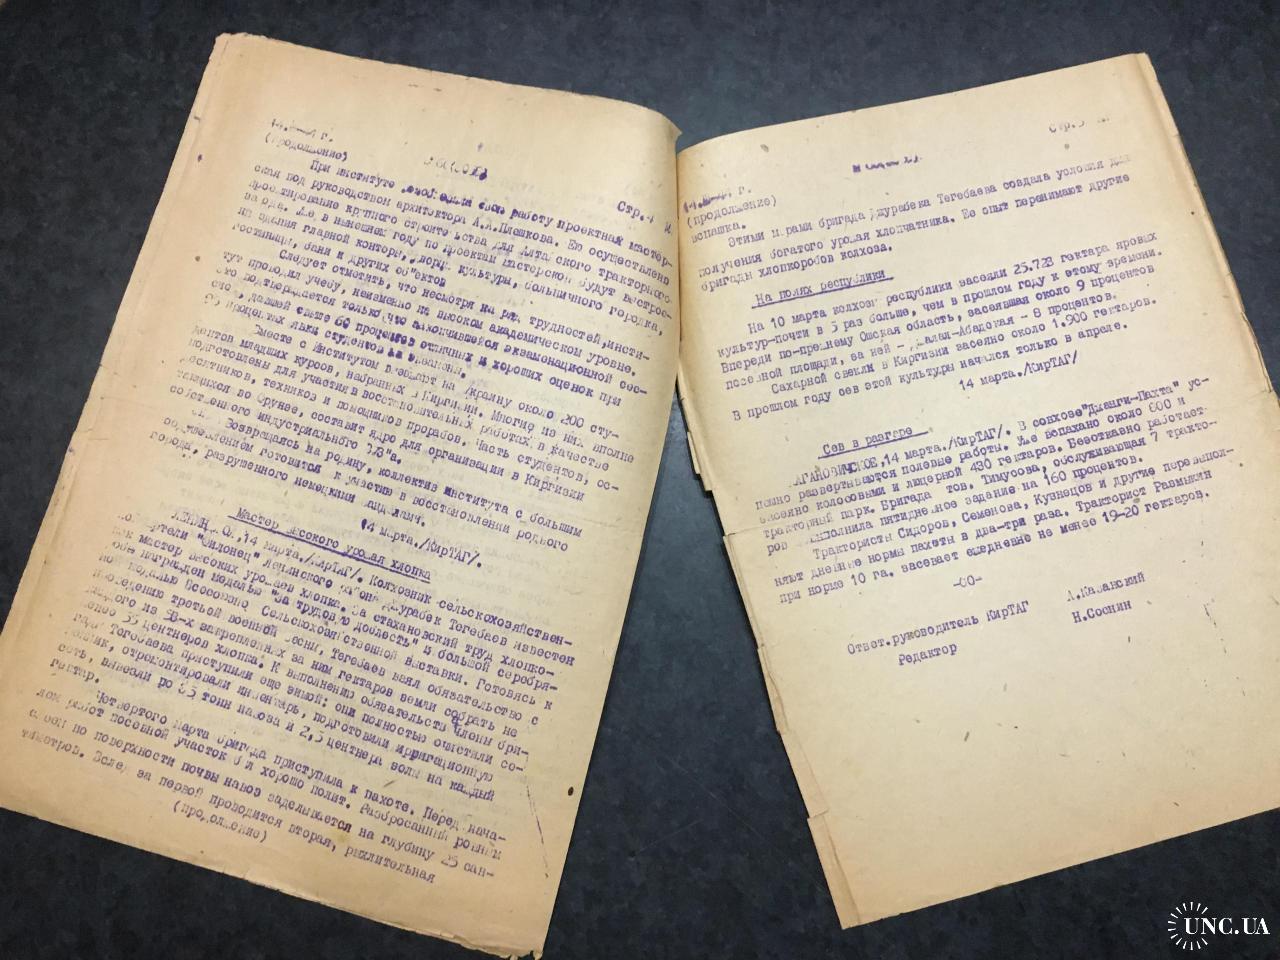 (продолжение)
Стр.4
При институте свою работу проектная мастер-
ская под руководством архитектора А.А.Плешкова. Ею осуществлено
проектирование крупного строительства для Алтайского тракторного
завода. Уже в нынешнем году по проектам мастерской будут выстрое-
ны здания главной конторы, дворц культуры, больничного городка,
гостиницы, бани и других об'ектов
Следует отметить, что несмотря на ряд трудностей,инсти-
тут проводил учебу, неизменно на высоком академическом уровне.
Это подтверждается только что закончившейся экзаменационной сес-
сией, давшей свыше 60 процентов отличных и хороших оценок при
процентах явки студентов на экзамены.
Вместе с Институтом выезжают на Украину около 200 сту-
дентов младших курсов, набранных в Киргизии. Многие из них вполне
подготовлены для участия в восстановительных работах в качестве
десятников, техников и помощников прорабов. Часть студентов, ос-
тающихся во Фрунзе, составит ядро для организации в Киргизии
собственного индустриального ВУЗ"а.
Возвращаясь на родину, коллектив института с большим
воодушевлением готовится к участию в восстановлении родного
города, разрушенного немецкими
14 марта./КирТАГ/.
Мастер высокого урожая хлопка
14 марта./КирТАГ/. Колхозник сельскохозяйствен-
ной артели Ленинского района Джурабек Тегебаев известен
как мастер высоких урожаев хлопка. За стахановский труд хлопко-
роб награжден медалью "За трудовую доблесть" и большой серебря-
ной медалью Всесоюзной Сельскохозяйственной выставки. Готовясь к
проведению третьей военной весны, Тегебаев взял обязательство с
каждого из закрепленных за ним гектаров земли собрать не
менее 35 центнеров хлопка. К выполнению обязательств члены бри-
гады Тегебаева приступили еще зимой: они полностью очистили
отремонтировали инвентарь, подготовили ирригационную
сеть, вывезли по тонн навоза и 2,5 центнера золы на каждый
гектар.
Четвертого марта бригада приступила к пахоте. Перед нача-
лом работ посевной участок был хорошо полит. Разбросанный ровным
слоем по поверхности почвы навоз заделывается на глубину 25 сан-
тиметров. Вслед за первой проводится вторая, рыхлительная
(продолжение)
Стр.5
(продолжение)
вспашка.
Этими мерами бригада Джурабека Тегебаева создала условия для
получения богатого урожая хлопчатника. Ее опыт перенимают другие
бригады хлопкоробов колхоза.
На полях республики
На 10 марта колхозы республики засеяли 25.728 гектара яровых
культур-почти в 5 раз больше, чем в прошлом году к этому времени.
Впереди по-прежнему Ошская область, засеявшая около 9 процентов
посевной площади, за ней - Джалал-Абадская - 8 процентов.
Сахарной свеклы в Киргизии засеяно около 1.900 гектаров.
В прошлом году сев этой культуры начался только в апреле.
14 марта./КирТАГ/
Сев в разгаре
КАГАНОВИЧСКОЕ,14 марта./КирТАГ/. В совхозе"Джанги-Пахта" ус-
пешно развертываются полевые работы. Уже вспахано около 600 и
засеяно колосовыми и люцерной 430 гектаров. Безотказно работает
тракторный парк. Бригада тов. Тимусова, обслуживающая 7 тракто-
ров выполнила пятидневное задание на 160 процентов.
Трактористы Сидоров, Семенова, Кузнецов и другие перевыпол-
няют дневные нормы пахоты в два-три раза. Тракторист Размыкин
при норме 10 га. засевает ежедневно не менее 19-20 гектаров.
-00-
Ответ.руководитель КирТАГ А.Казанский
Редактор Н.Соснин
UNC.UA